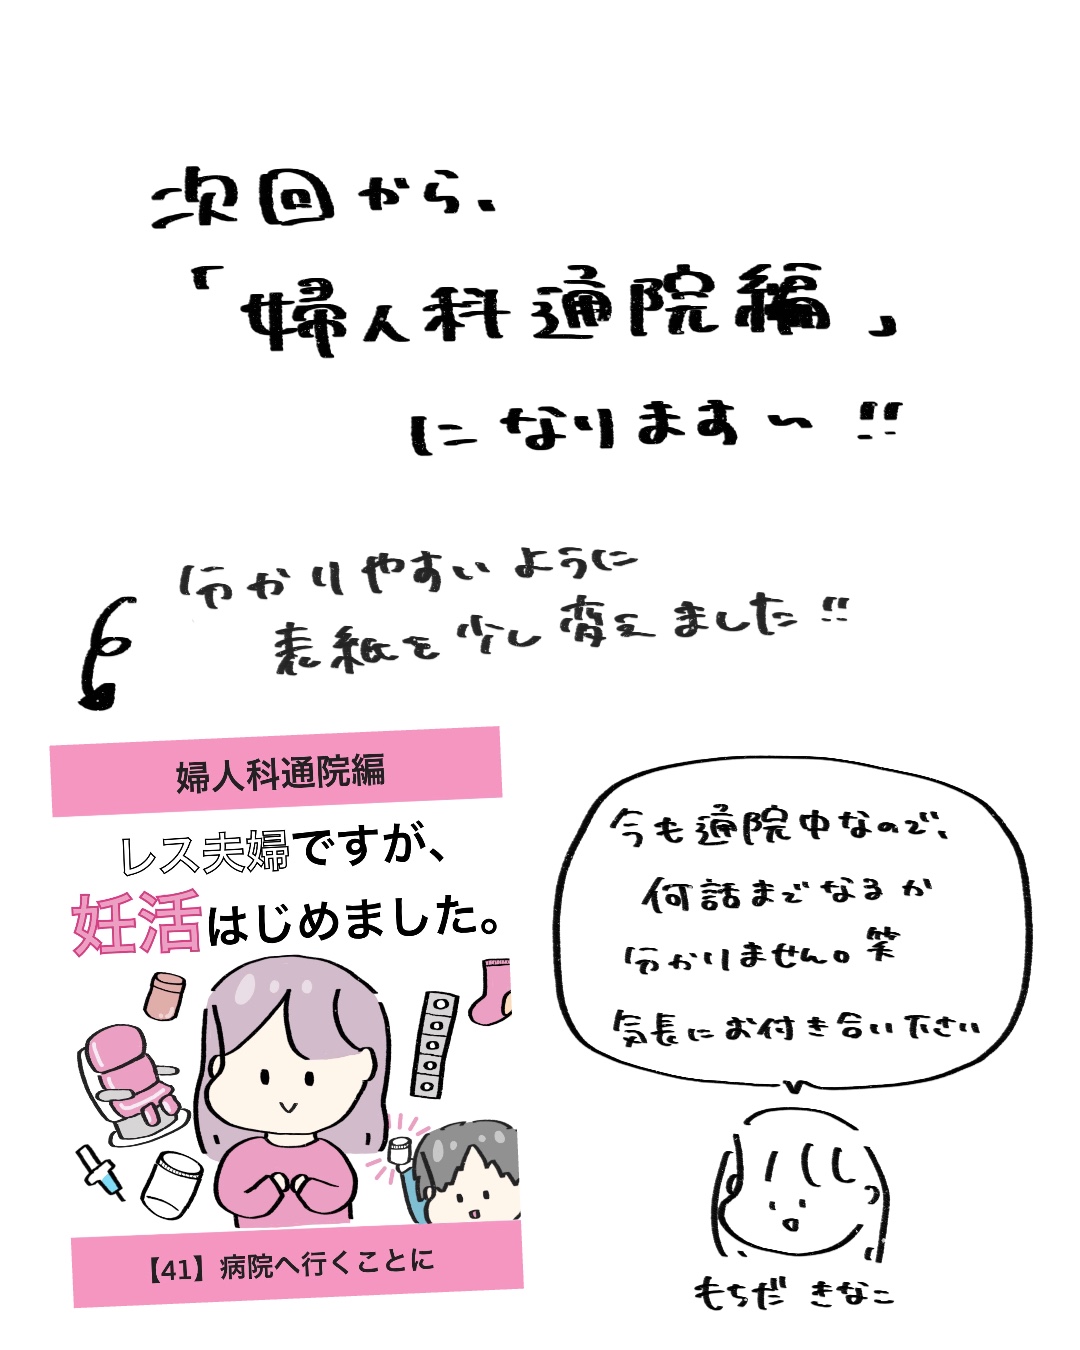 次回から、
「婦人科通院編」
になります〜!!
分かりやすいように
表紙を少し変えました!!
婦人科通院編
レス夫婦ですが、
妊活はじめました。
【41】病院へ行くことに
今も通院中なので、
何話までなるか
分かりません。笑
気長にお付き合い下さい
もちだ きなこ